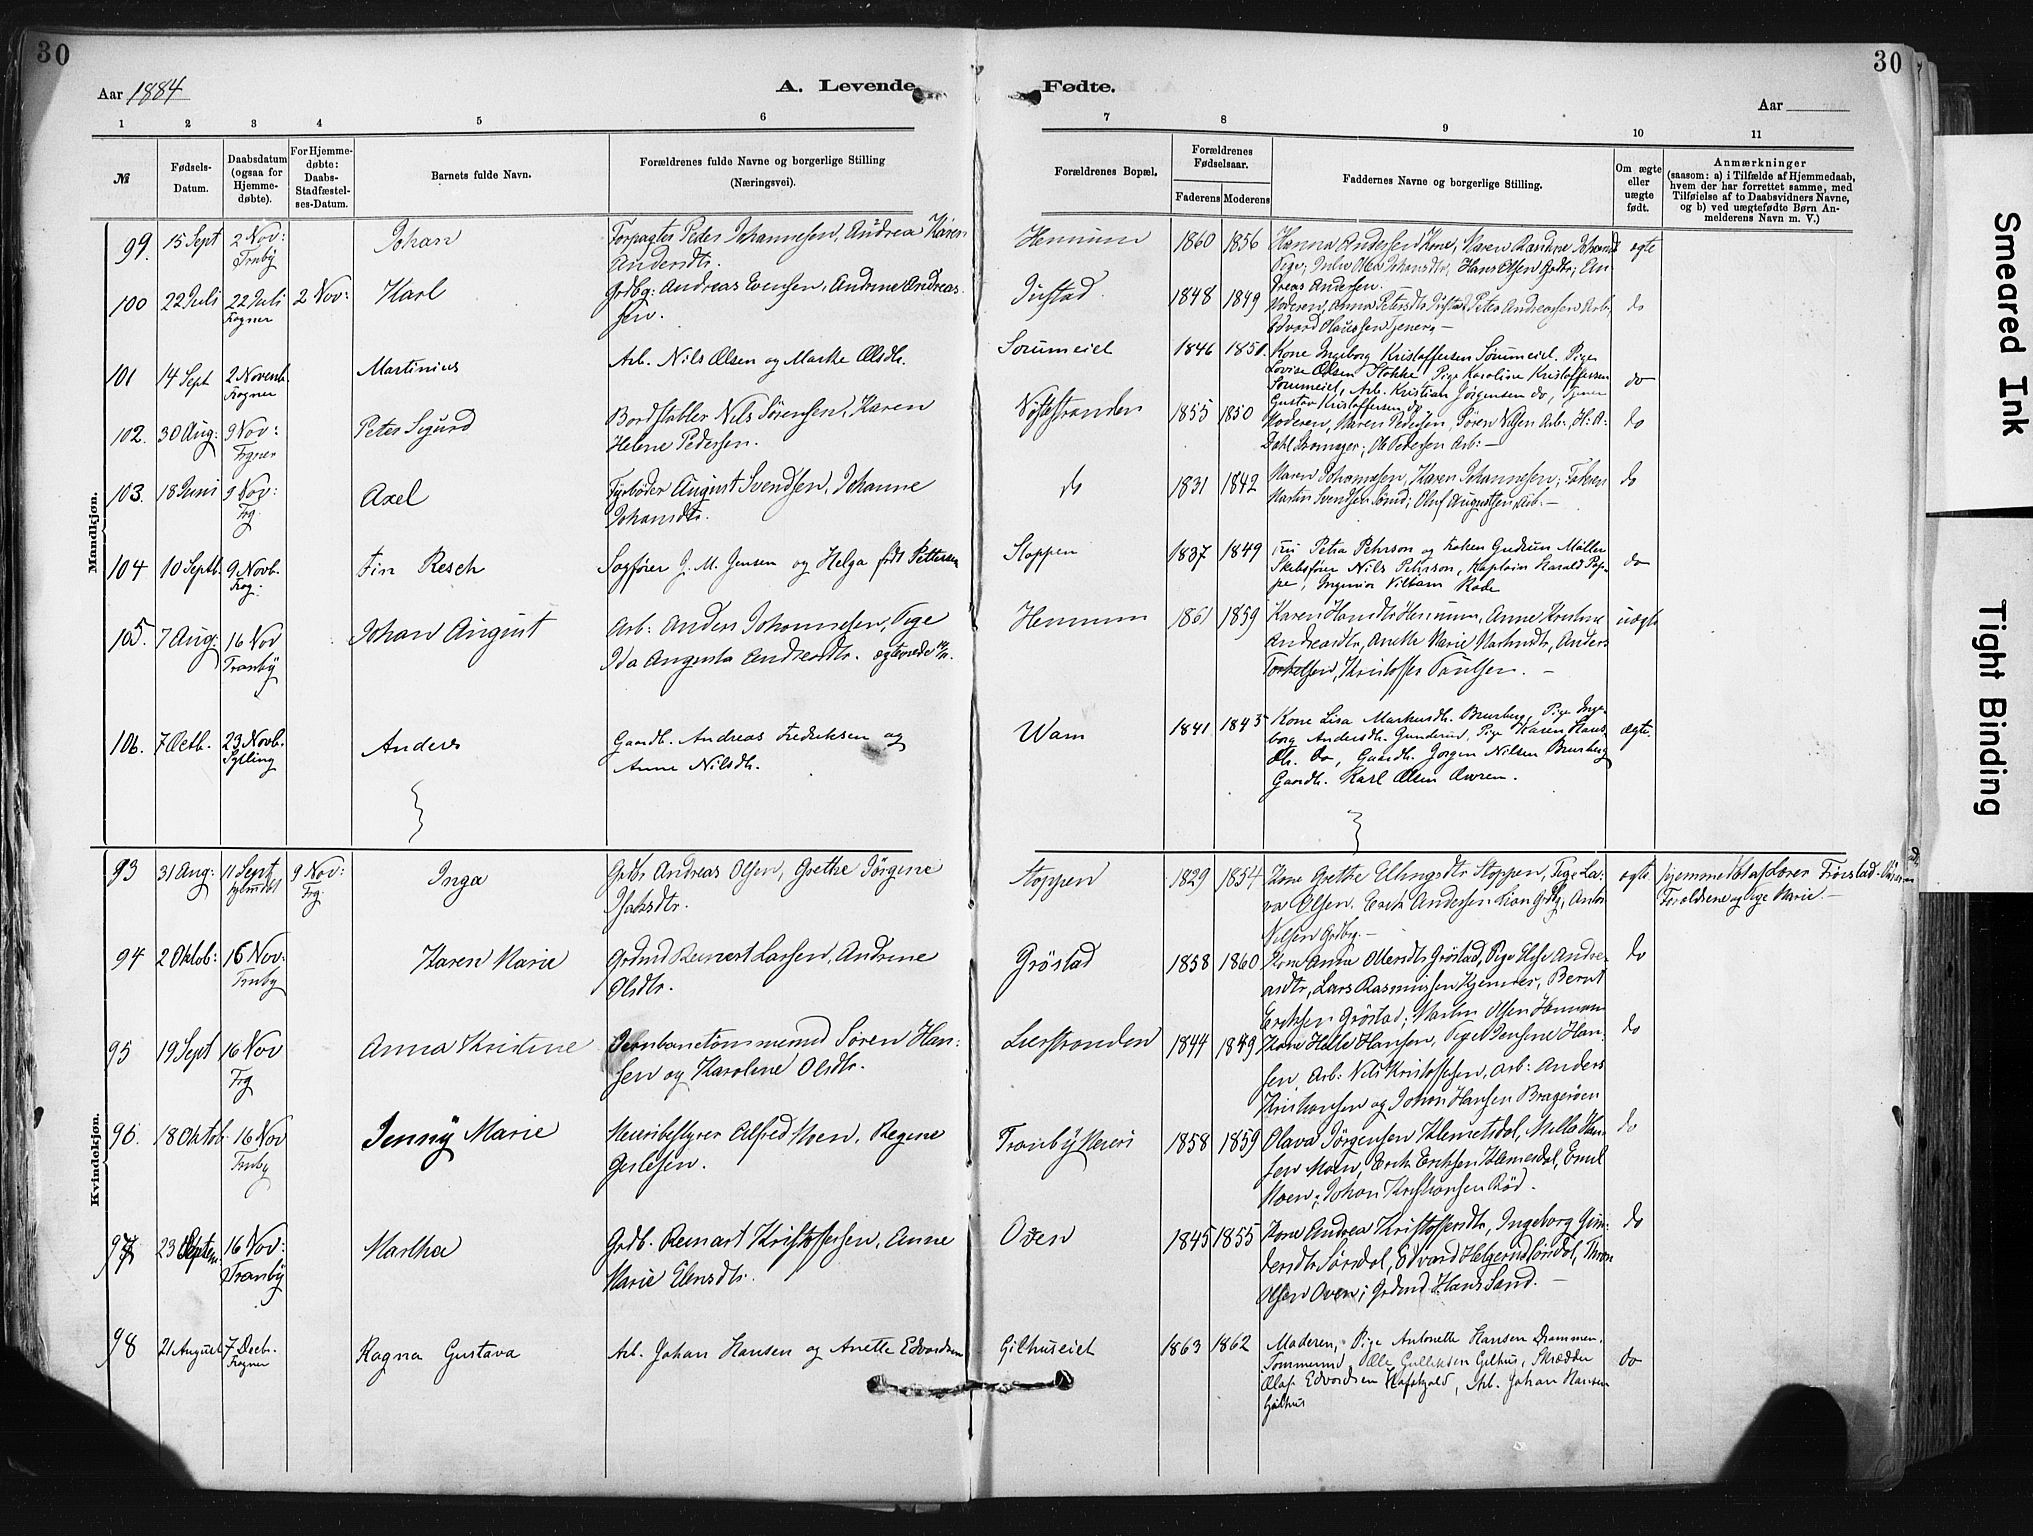 30
30
Aar 1884
A. Levende Fødte.
Aar
1 2 3 4 5 6 7 8 9 10 11
№
Fødsels-Datum.
Daabsdatum (ogsaa for Hjemmedøbte).
For Hjemmedøbte: Daabs-Stadfæstelses-Datum.
Barnets fulde Navn.
Forældrenes fulde Navne og borgerlige Stilling (Næringsvei).
Forældrenes Bopæl,
Forældrenes Fødselsaar.
Faderens Moderens
Faddernes Navne og borgerlige Stilling.
Om ægte eller uægte født.
Anmærkninger
(saasom: a) i Tilfælde af Hjemmedaab, hvem der har forrettet samme, med Tilføielse af to Daabsvidners Navne, og b) ved uægtefødte Børn Anmelderens Navn m. V.)
Mandkjøn.
99. 15 Sept 2 Nov: Trnby Johan Forpagter Peder Johannesen, Andrea Karen Andersdtr. Hennum 1860 1856 Hanna Andersen Kone, Maren
Pige, Hans Olsen
Andreas Andersen. ægte
100 22 Juli 22 Juli Frogner 2 Nov: Karl Grdbg: Andreas Evensen, Andrine Andreassen. Justad 1848 1849 Moderen, Anna Petersdtr Justad, Peter Andreassen Arb.,
Edvard Olaussen Tjener do
101 14 Sept 2 Novemb. Frogner Martinius Arb. Nils Olsen og Marthe Olsdtr. Sørumeiet 1846 1851. Kone Ingeborg Kristoffersen Sørumeiet. Pige
Lovise Olsen Stokke Pige Karoline Kristoffersen
Sørumeiet, Arb. Kristian Jørgensen do, Tjener
Gustav Kristoffersen do do
102. 30 Aug: 9 Nov: Frgner Peter Sigurd Bordstabler Nils Sørensen, Karen Helene Pedersen. Nøstestranden 1855 1850 Moderen, Maren Pedersen, Søren Nilsen Arb. H. A.
Dahl, Ole Pedersen Arb: do
103. 18 Juni 9 Nov: Frg. Axel Fyrbøder August Svendsen, Johanne Johansdtr. do 1831 1842 Maren Johannesen, Karen Johannesen;
Martin Svendsen Smed; Oluf Augustsen, Arb. do
104 10 Septb. 9 Novb. Frog. Fin Resch Sagfører J. M. Jensen og Helga født Pettersen Stoppen 1837 1849 Fru Petra Pehrson og Frøken Gudrun Møller
Skibsfører Nils Pehrson, Kaptain Harald Pappe,
Ingeniør Vilhelm Rode do
105. 7 Aug: 16 Nov Tranby Johan August Arb: Anders Johannesen, Pige Ida Augusta Andreasdtr. Hennum 1861 1859 Karen Hansdtr Hennum, Anne Kristine
Andreasdtr, Anette Marie Martinsdtr, Anders
Torkelsen, Kristoffer Paulsen. uægte
106. 7 Octb. 23 Novb. Sylling Anders Gaardb. Andreas Fredriksen og Anne Nilsdtr. Wam 1841 1845 Kone Lisa Markusdtr. Bruberg, Pige Ingeborg
Andersdtr. Gunderud, Pige Karen Hansdtr.
do, Gaardb. Jørgen Nilsen Bruberg
Gaardb. Karl Olsen Overen. ægte
Kvindekjøn.
93 31 Aug: 11 Sept hjemdbt 9 Nov: Frg. Inga Grdbr Andreas Olsen, Grethe Jørgine Isaksdtr. Stoppen 1829 1854 Kone Grethe Ellingsdtr Stoppen, Pige Lava
Olsen. Erik Andersen Lian Grdbg, Anton
Nilsen Grdbg. ægte hjemmedøbt af Lærer Frøstad
Forældrene og Pige Marie.
94 2 Oktob: 16 Nov: Trnby Karen Marie Grdmd Reinert Larsen, Andrine Olsdtr. Grøstad 1858 1860 Kone Anne Ottersdtr Grøstad, Pige Else Andreasdtr,
Lars Rasmussen Kjenner, Bernt
Eriksen Grøstad; Martin Olsen Hennum do
95 19 Sept 16 Nov Frg Anna Kristine Jernbanetømmermd Søren Hansen og Karoline Olsdtr. Lierstranden 1844 1849 Kone Helle Hansen, Pige Jensine Hansen,
Arb: Nils Kristoffersen, Arb: Anders
Kristiansen og Johan Hansen Bragerøen do
96. 18 Oktob 16 Nov Trnby Jenny Marie Meieribestyrer Alfred Moen, Regine Gislesen. Tranby Meieri 1858 1859 Olava Jørgensen Klemetsdal, Milla Hansen
Moen, Erik Eriksen Klemesdal, Emil
Moen, Johan Kristiansen Rød. do
97 23 Septem 16 Nov: Tranby Martha Grdb. Reinart Kristoffersen, Anne Marie Elensdtr. Oven 1845 1855 Kone Andrea Kristoffersdtr, Ingeborg Gundersdtr
Sørsdal, Edvard Helgersen Sørsdal,
Olsen Oven; Grdmd Hans Sand. do
98 21 August 7 Decb. Frogner Ragna Gustava Arb. Johan Hansen og Anette Edvardsen Gilhuseiet 1863 1862 Moderen, Pige Antonette Hansen Drammen.
Tømmermd. Olle Gulliksen Gilhus, Skrædder
Olaf Edvardsen Hafskjold, Arb. Johan Hansen
Gilhus do
Smeared Ink
Tight Binding